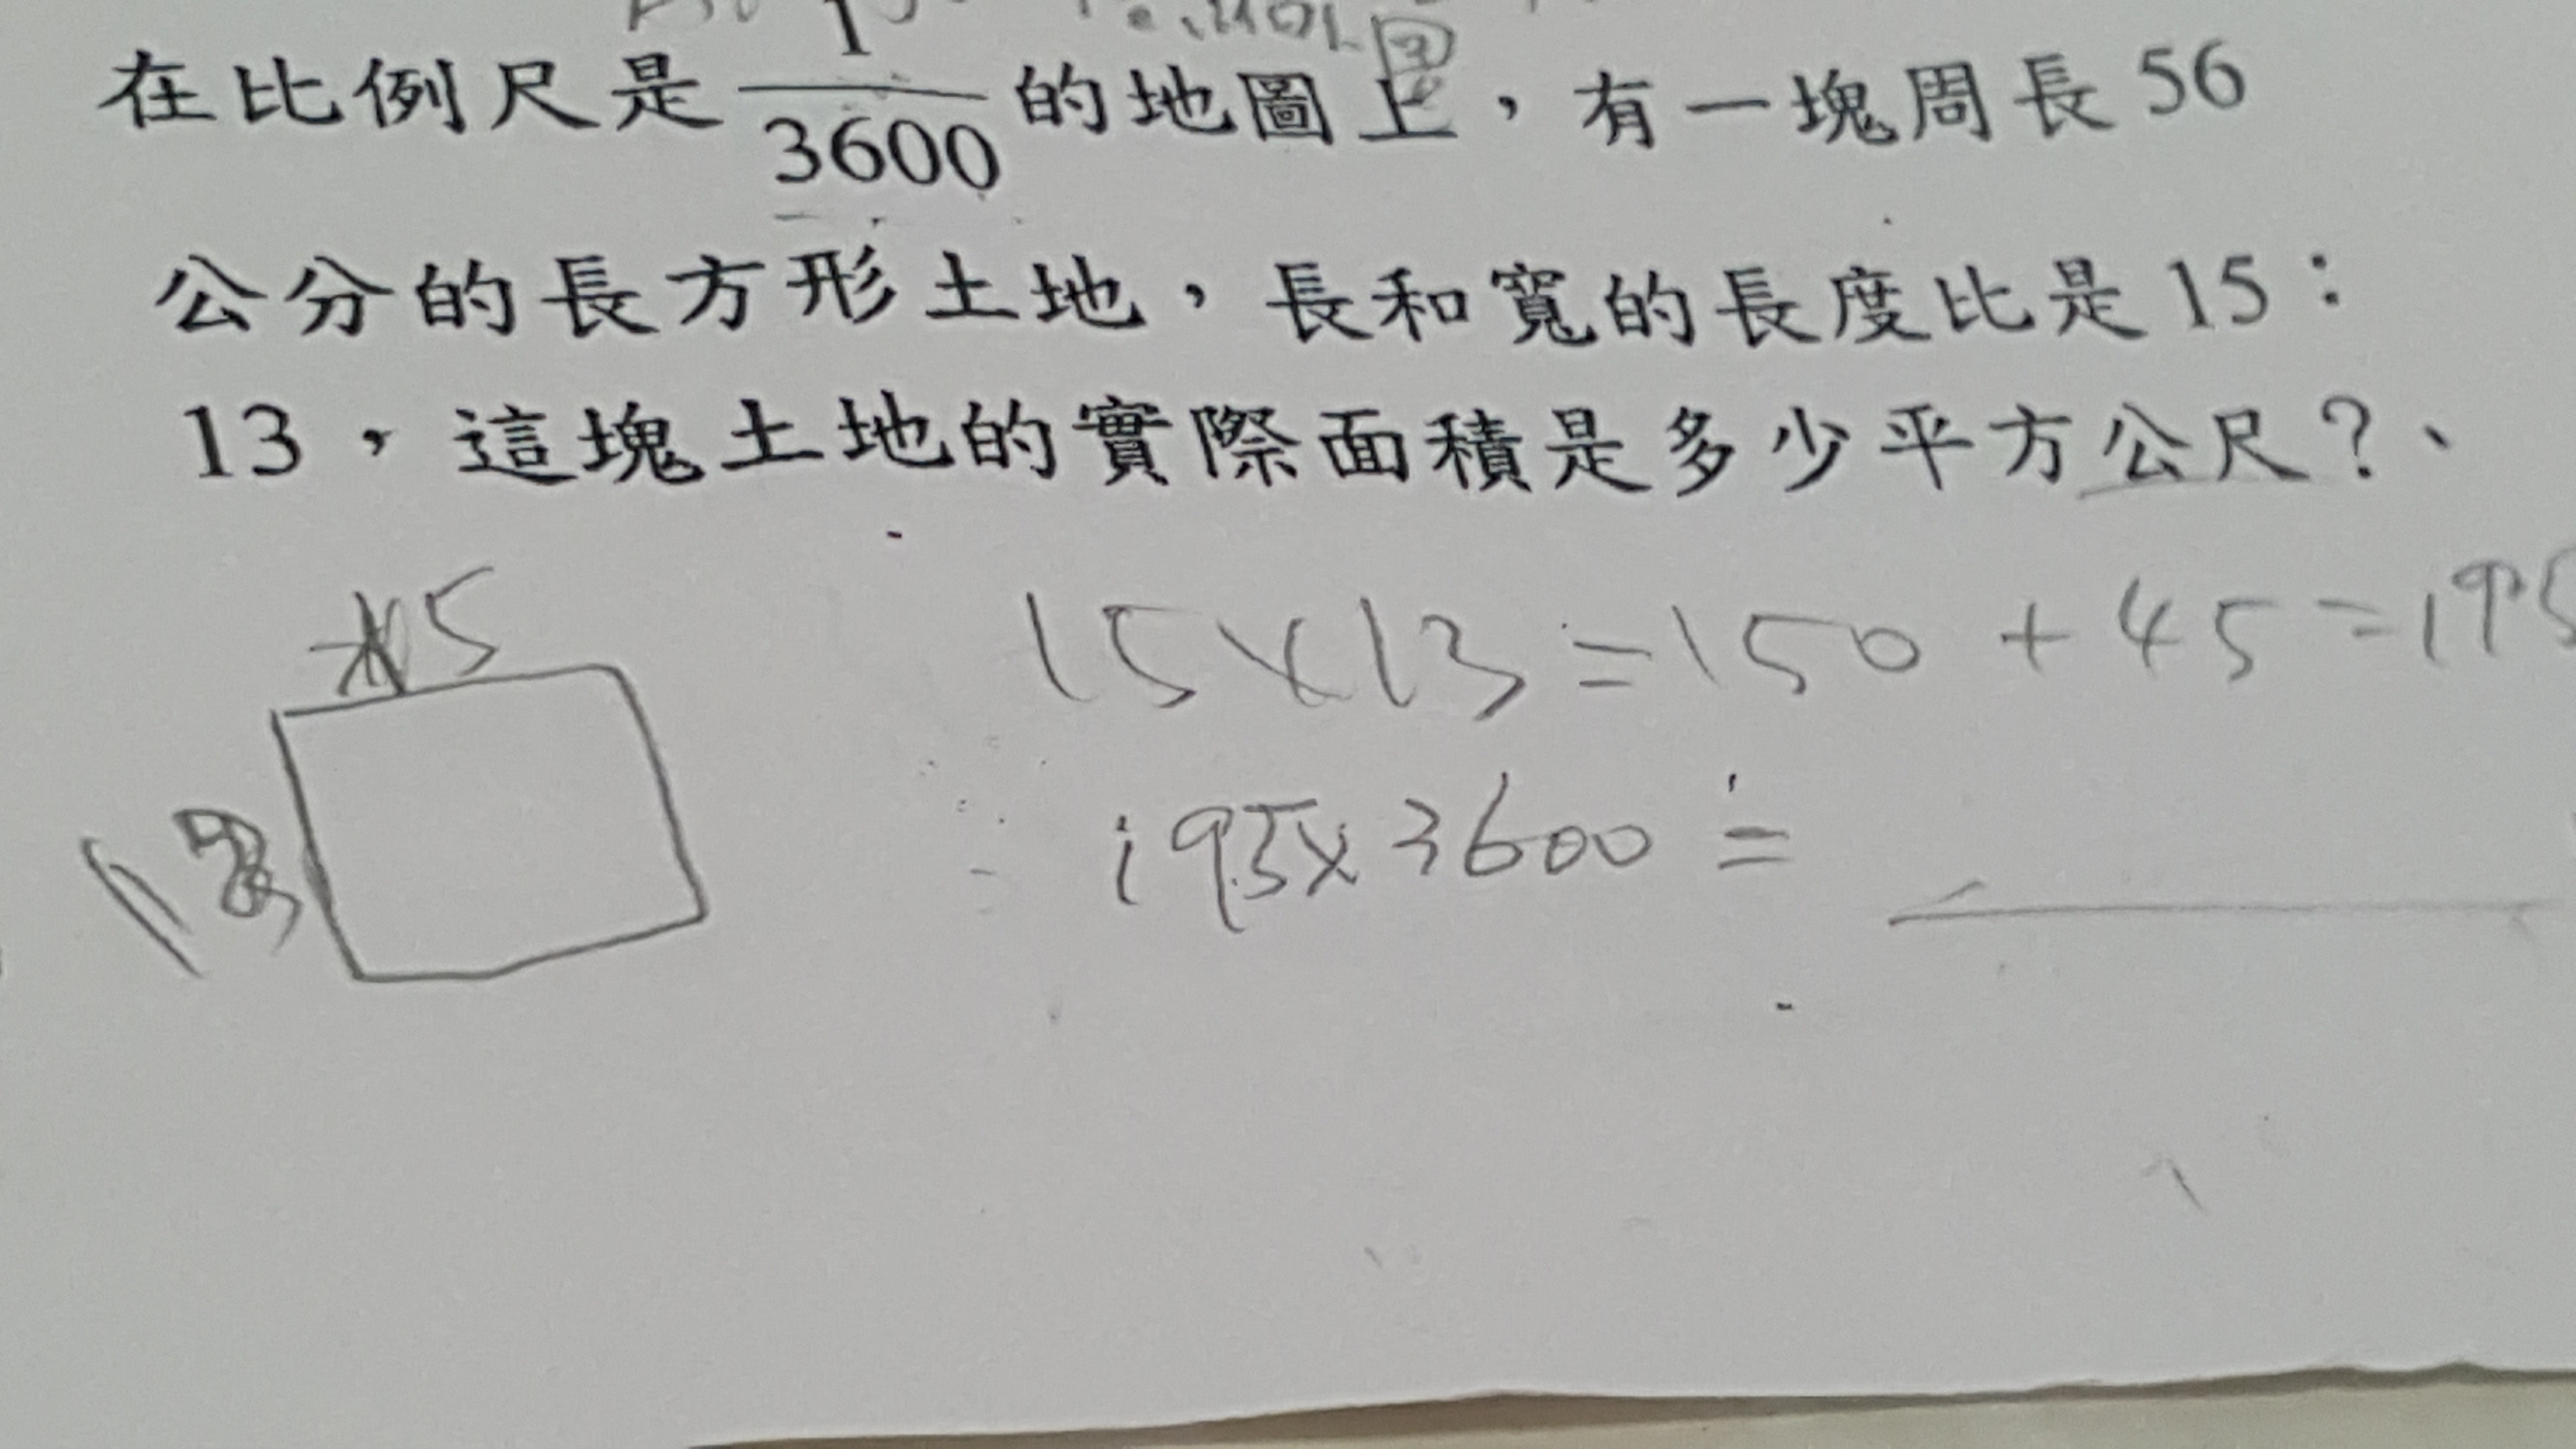 在比例尺是1/3600的地圖上，有一塊周長56
公分的長方形土地，長和寬的長度比是15：
13，這塊土地的實際面積是多少平方公尺？
15
15×13=150+45=195
13
195×3600=